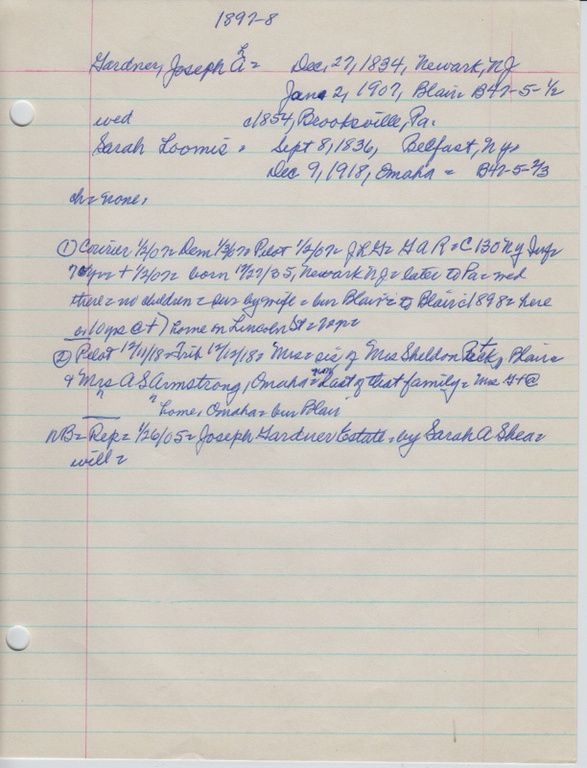 1897-8
Gardner, Joseph L A = Dec, 27, 1834, Newark, NJ
Jan 2, 1907, Blair = B47-5-1/2
wed c1854, Brooksville, Pa.
Sarah Loomis = Sept 8, 1836, Belfast, Ny =
Dec 9, 1918, Omaha = B47-5-2/3
ch = none,
① Courier 1/2/07 = Dem 1/3/07 = Pilot 1/2/07 = J L G = G A R = C 130 NY Inf =
+ 1/2/07 = born 12/27/35, Newark NJ = later to Pa = wed
there = no children = sur by wife = bur Blair = to Blair c1898 = here
10 yrs @ + home on Lincoln St =
② Pilot 12/11/18 = Trib 12/12/18 = Mrs = sis of Mrs Sheldon Peck, Blair =
& Mrs A S Armstrong, Omaha = Last of that family = Mrs G + @
" home, Omaha = bur Blair
NB = Rep = 1/26/05 = Joseph Gardner Estate = by Sarah A Shea =
will =